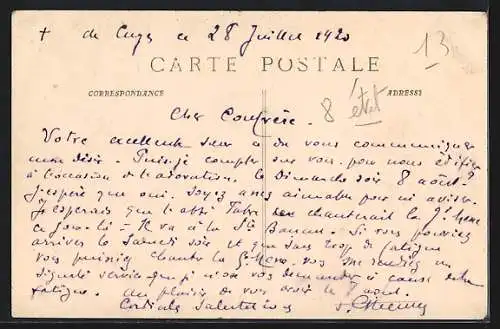 + de Cuges ce 28 Juillet 1920
13
CARTE POSTALE
CORRESPONDANCE
ADRESSE
Cher Confrère.
8
Votre excellente sœur a dû vous communiquer
mon désir. Puis-je compter sur vous pour nous édifier
à l'occasion de l'adoration, le Dimanche soir 8 août?
J'espère que oui. Soyez assez aimable pour m'aviser.
J'espérais que l'abbé chanterait la G. Messe
ce jour-là - Il va à la Ste Baume. Si vous pouviez
arriver le Samedi soir et que sans trop de fatigue
vous puissiez chanter la G. Messe, vous me rendriez un
signalé service que je n'ose vous demander à cause de la
fatigue. Au plaisir de vous voir le 7 août.
Cordiales salutations